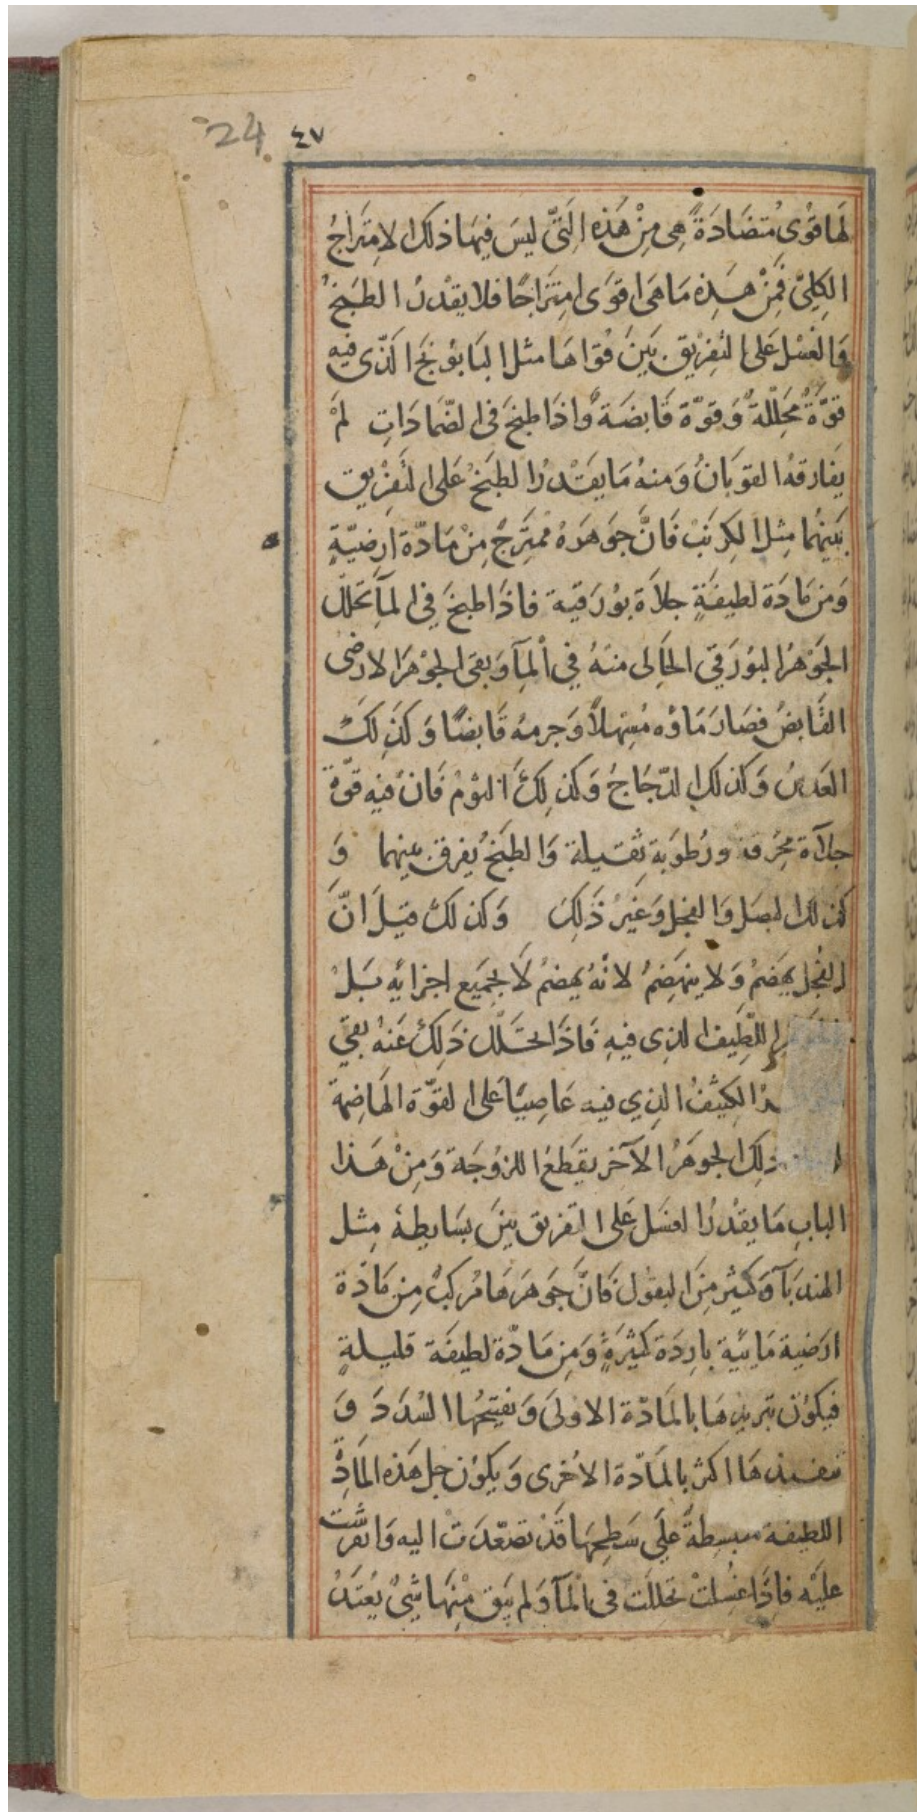 24 ٤٧
لَها قوىُ مُتضَادَةً هِى مِنْ هَذه التَّى ليسَ فيهَا ذلك الامتَراجُ
الكِلىْ فَمِنْ هَذِه مَا هَى اقوَى امتَراجًا فلا يقْدرُ الطبَخُ
وَالغَسْل عَلى التفِرْيق بَينَ قوّاهَا مثل البَابوُنجَ الذّى فيه
قوّةٌ مُحِللّةٌ وَقوّة قَابضَةٌ وَاذَا طبخَ فى الضّمادَاتِ لمْ
يفَارقهُ القوتَانُ وَمنهُ مَا يقَتْدرُ الطبَخُ عَلى التَفْرِيق
بَينَهُما مِثل الكِرنَبْ فَانَّ جَوهَرَهُ مُمتَزجُ مِنْ مَادّة ارضِيّةٍ
وَمنِ مَادَة لطيفَةٍ جلآة بوُرَقية فاذَا طبخَ فِي المآءِ تحَللّ
الجَوْهرُ البوُرَقي الجَالى منهُ في اْلمآءِ وَبقى الجوْهرَ الارضىُ
القَابضُ فصَارَ مَاؤه مُسِهلاً وَجرمهُ قَابضًا وَكذَلكَ
العَدسُ وَكذلكِ الدّجَاجُ وَكذلِكَ الثوْمُ فَانّ فيه قوّة
جلآة مُحرقة ورُطوَبة ثقيلة وَالطبَخُ يفرق بينهما وَ
كذلك البصَل وَالفجل وَغيرُ ذَلِكَ وَكذلكَ قيلَ انَّ
الفُجل يهضمُ وَلا ينهَضِمُ لانّهُ يهضمُ لَا بجَميَع اجزائه بَلْ
اللّطِيف الذى فيهِ فَاذَا تحَلّل ذَلِكَ عَنهُ بقي
الكِثيفُ الذِي فيه عَاصِيًا عَلى القوّة الهَاضِمة
ذلِك الجوهَرُ الآخر يقطَعُ اللزوُجَة وَمِنْ هَذا
البابِ مَا يقدُرُ الغسَل عَلى التفريق بينَ بسَايطهُ مِثل
الهندَبَآ وَكثير مِنَ البقول فَانَّ جَوهَرهَا مُركبٌ مِن مَادّة
ارَضية مَائية بارِدَة كثِيرَةٍ وَمِن مَادّة لطيفَة قليلةٍ
فيكوُن تبريدهَا بالمَادّة الاولىَ وَتفتيحُها السُددَ وَ
تنفيذهَا اكثر بالمَادّة الاخُرى وَيكوُن جل هَذه المَادّة
اللطيفة منبسِطةً عَلَى سَطِحهَا قَدْ تصَعّدَتْ اليه وَانفرشَت
عليَه فاِذَا غسُلتْ تحَللَت فى المآء وَلم يَبق مْنِهَا شَيْ يعُتَدُ